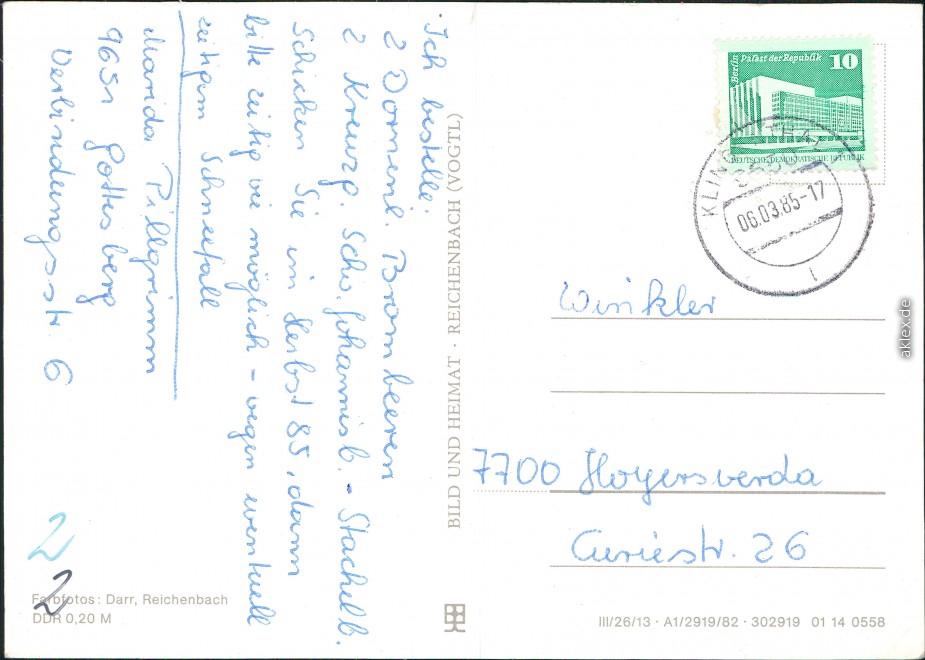 Ich bestelle:
2 Dornenl. Brombeeren
2 Kreuzg. Schw. Johannisb. - Stachelb.
Schicken Sie im Herbst 85, dann
bitte zeitig wie möglich - wegen eventuell
zeitigem Schneefall
Pillgrimm
9651 Gottesberg
Verbindungsstr. 6
2
2
Farbfotos: Darr, Reichenbach
DDR 0,20 M
BILD UND HEIMAT · REICHENBACH (VOGTL)
Berlin Palast der Republik 10
DEUTSCHE DEMOKRATISCHE REPUBLIK
06.03.85-17
Winkler
7700 Hoyerswerda
Curiestr. 26
III/26/13 · A1/2919/82 · 302919 01 14 0558
aklex.de